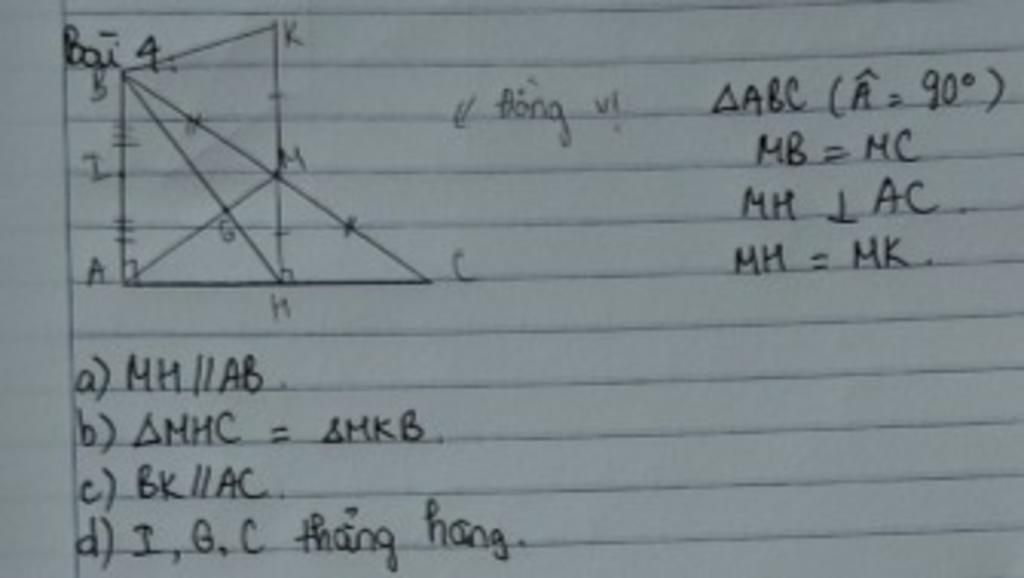 Bài 4.
K
B
I
M
G
A
H
C
// đồng vị
ΔABC (Â = 90°)
MB = MC
MH ⊥ AC.
MH = MK.
a) MH // AB.
b) ΔMHC = ΔMKB.
c) BK // AC.
d) I, G, C thẳng hàng.